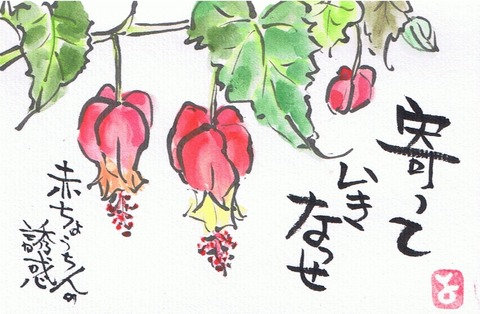 寄って
いきなっせ
赤ちょうちんの
誘惑